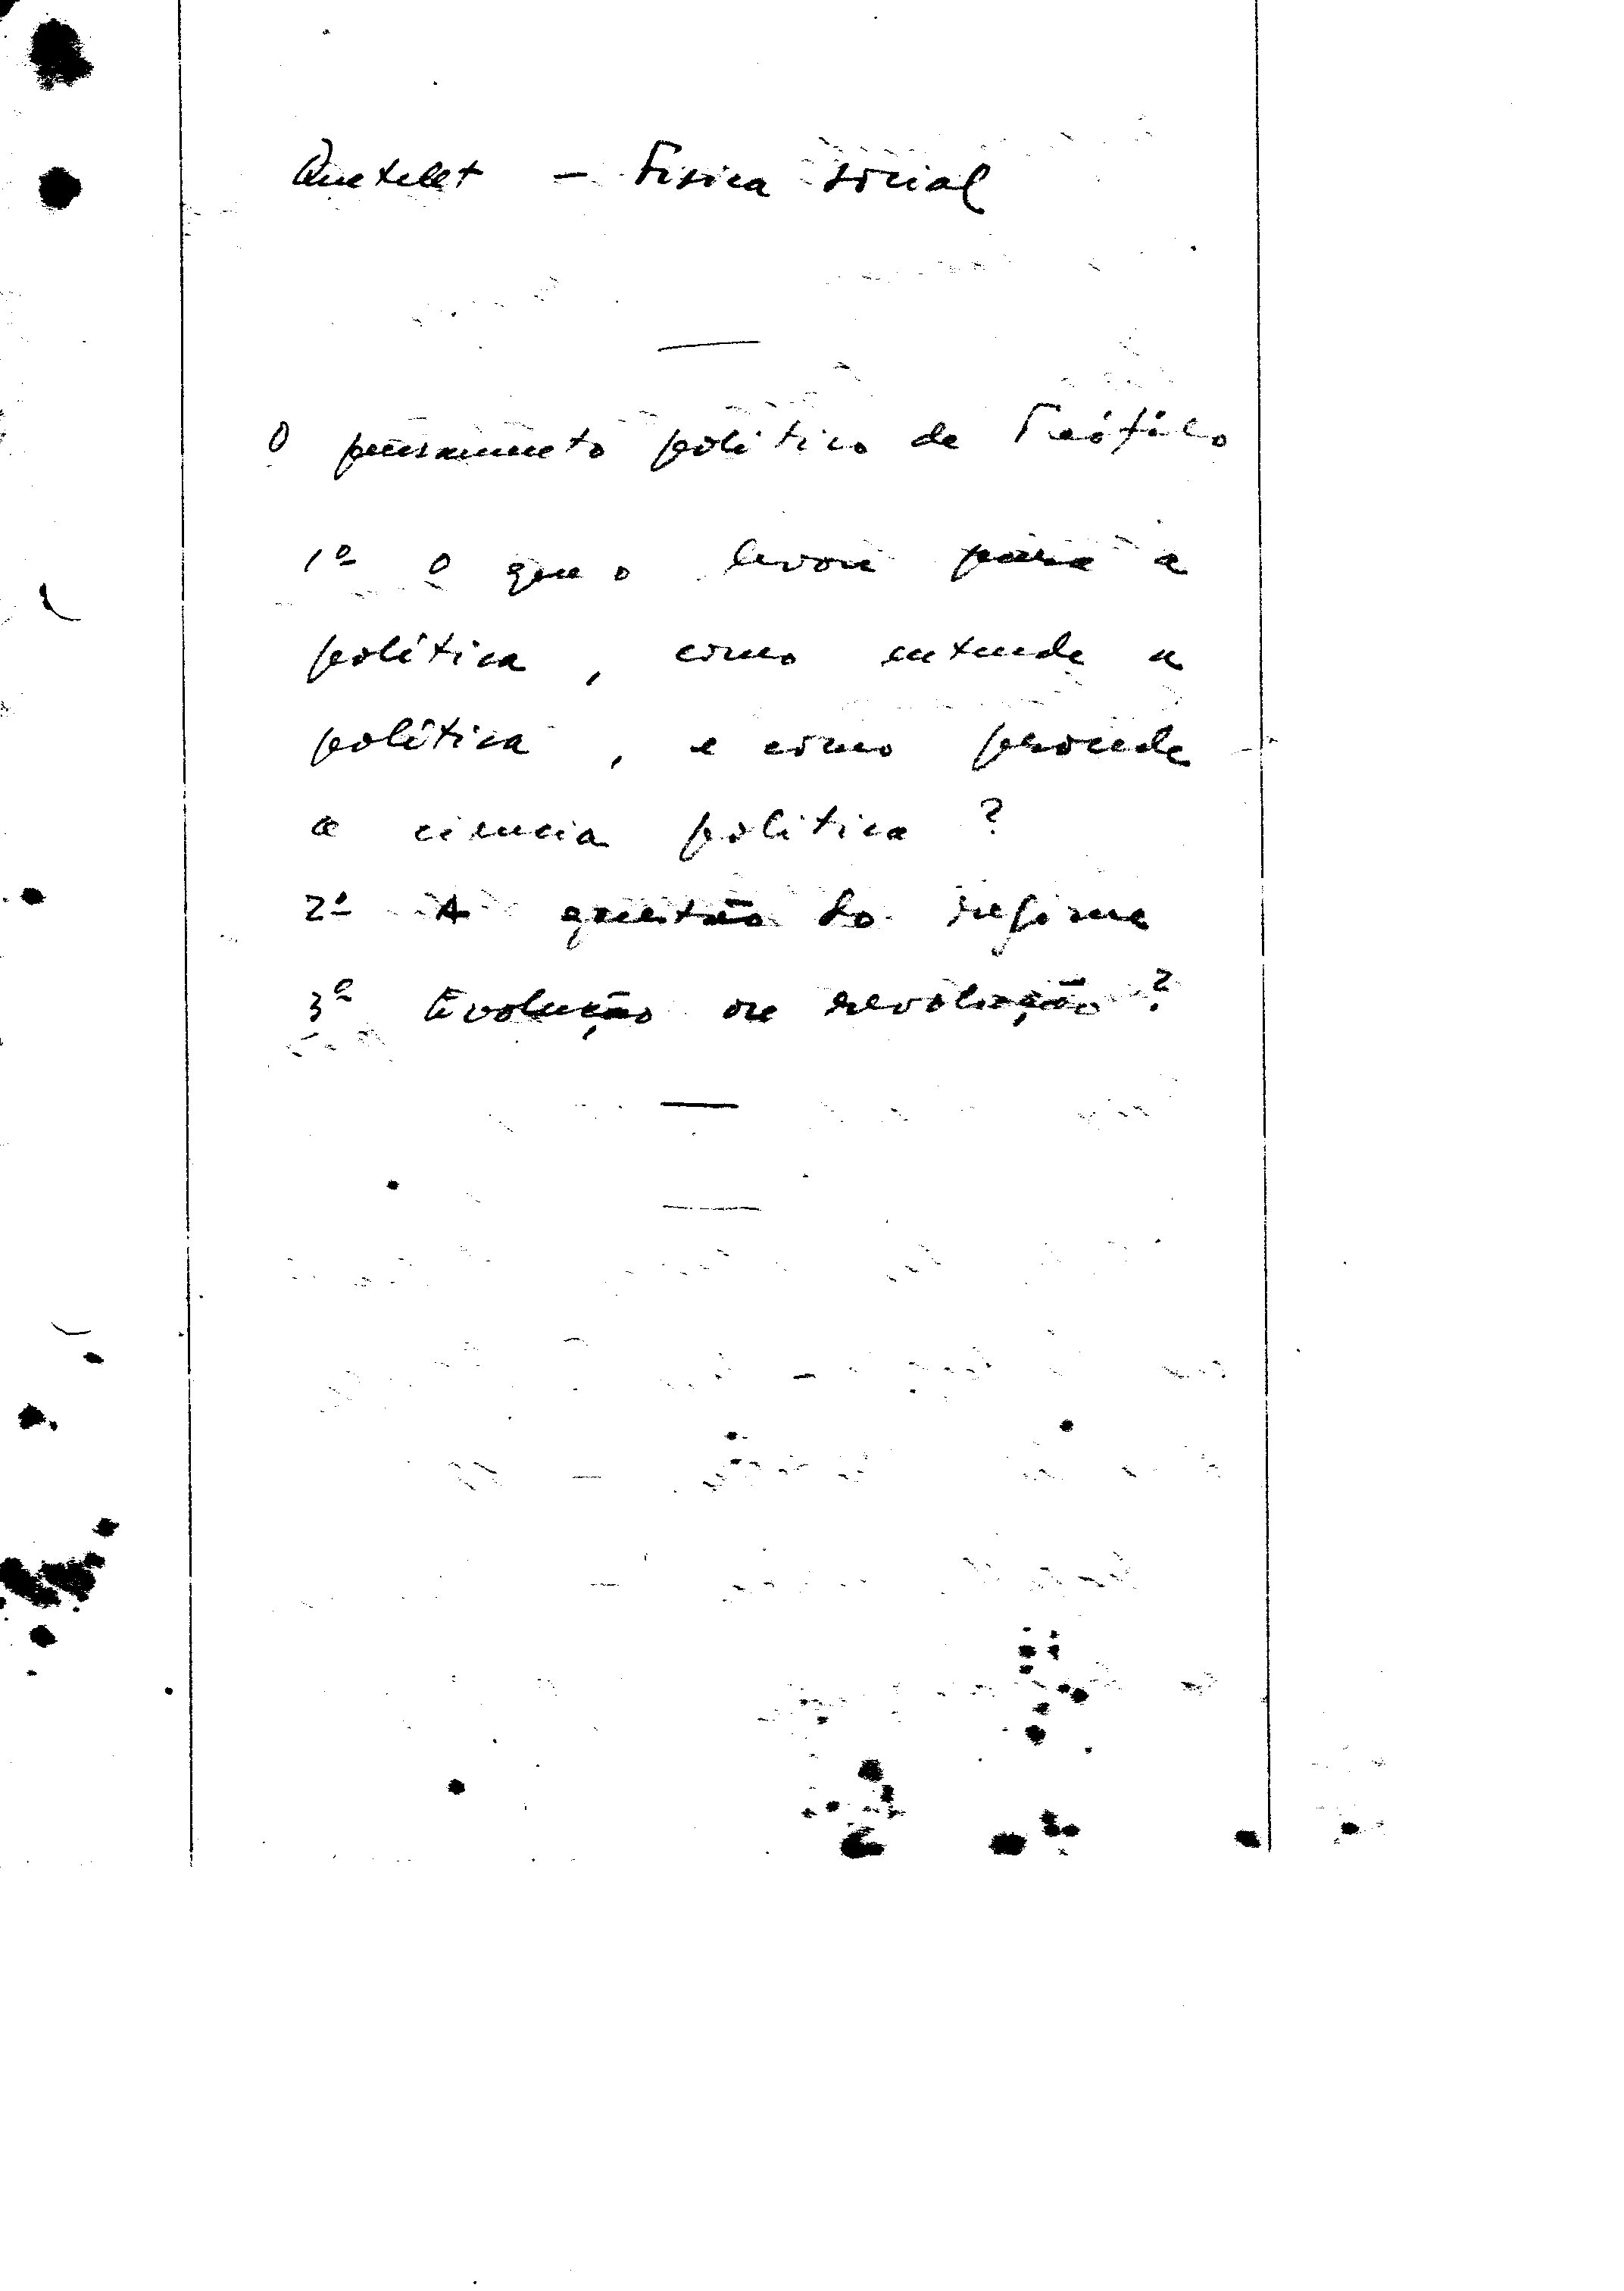 Quetelet - Fisica social
O pensamento politico de Teófilo
1º o que o levou para a
política, como entende a
política, e como procede
a ciencia politica ?
2º A questão do regime
3º Evolução ou revolução ?